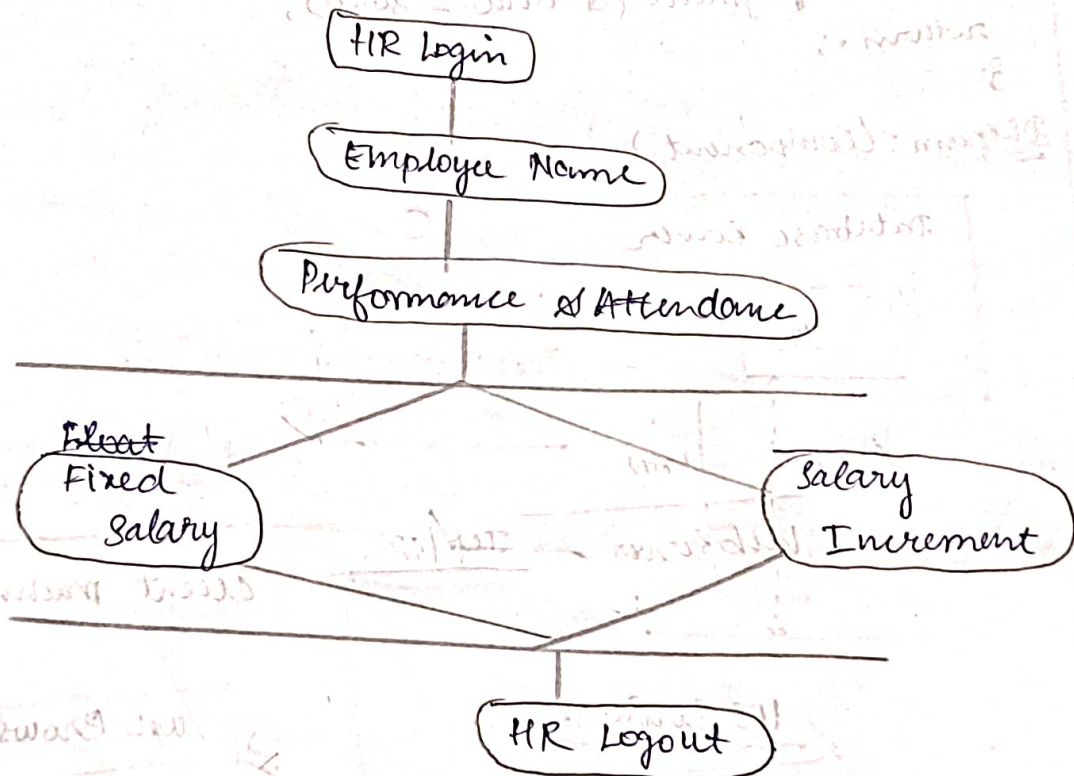 HR Login
Employee Name
Performance & Attendance
Fixed
Salary
Salary
Increment
HR Logout